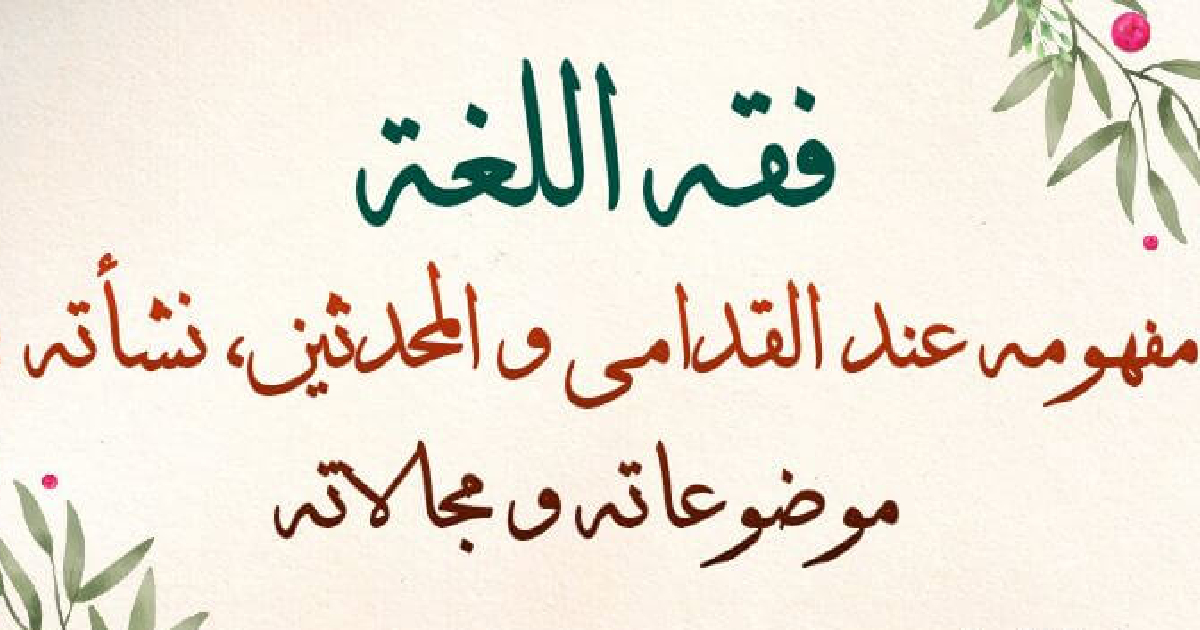 فقه اللغة
مفهومه عند القدامى و المحدثين، نشأته
موضوعاته و مجالاته